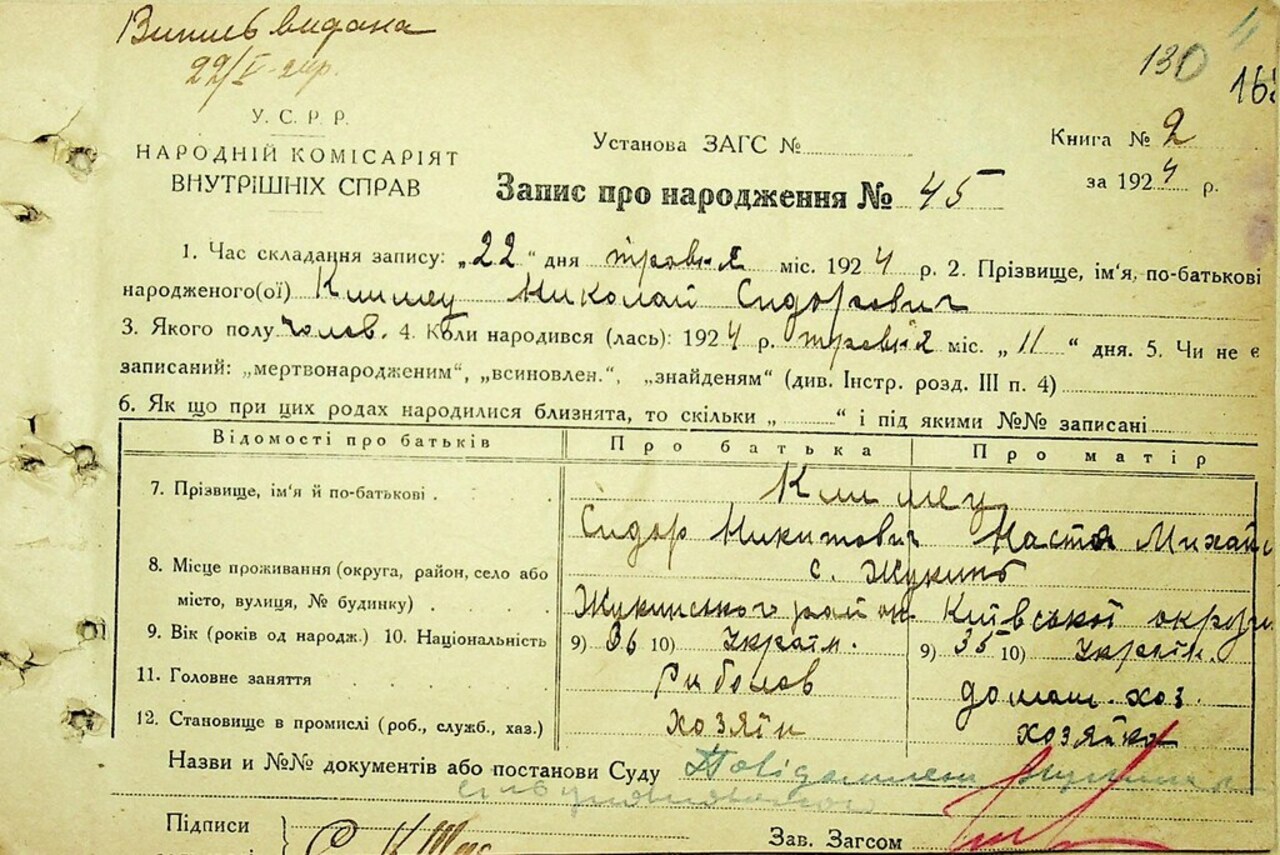 Випись видана
22/V-24р.
130
16
У. С. Р. Р.
НАРОДНІЙ КОМІСАРІЯТ
ВНУТРІШНІХ СПРАВ
Установа ЗАГС №
Книга № 2
за 1924 р.
Запис про народження № 45
1. Час складання запису: „22“ дня травня міс. 1924 р. 2. Прізвище, ім'я, по-батькові
народженого(ої) Климец Николай Сидорович
3. Якого полу чолов. 4. Коли народився (лась): 1924 р. травня міс. „11“ дня. 5. Чи не є
записаний: „мертвонародженим“, „всиновлен.“, „знайденям“ (див. Інстр. розд. III п. 4)
6. Як що при цих родах народилися близнята, то скільки „ “ і під якими №№ записані
Відомості про батьків Про батька Про матір
7. Прізвище, ім'я й по-батькові Климец
Сидор Никитович Настя Михайл
8. Місце проживання (округа, район, село або с. Жукинь
місто, вулиця, № будинку) Жукинського район Київської округи
9. Вік (років од народж.) 10. Національність 9) 36 10) Україн. 9) 35 10) Україн.
11. Головне заняття Риболов домаш. хоз.
12. Становище в промислі (роб., служб., хаз.) хозяін хозяйка
Назви и №№ документів або постанови Суду Повідомлення
Підписи
Зав. Загсом